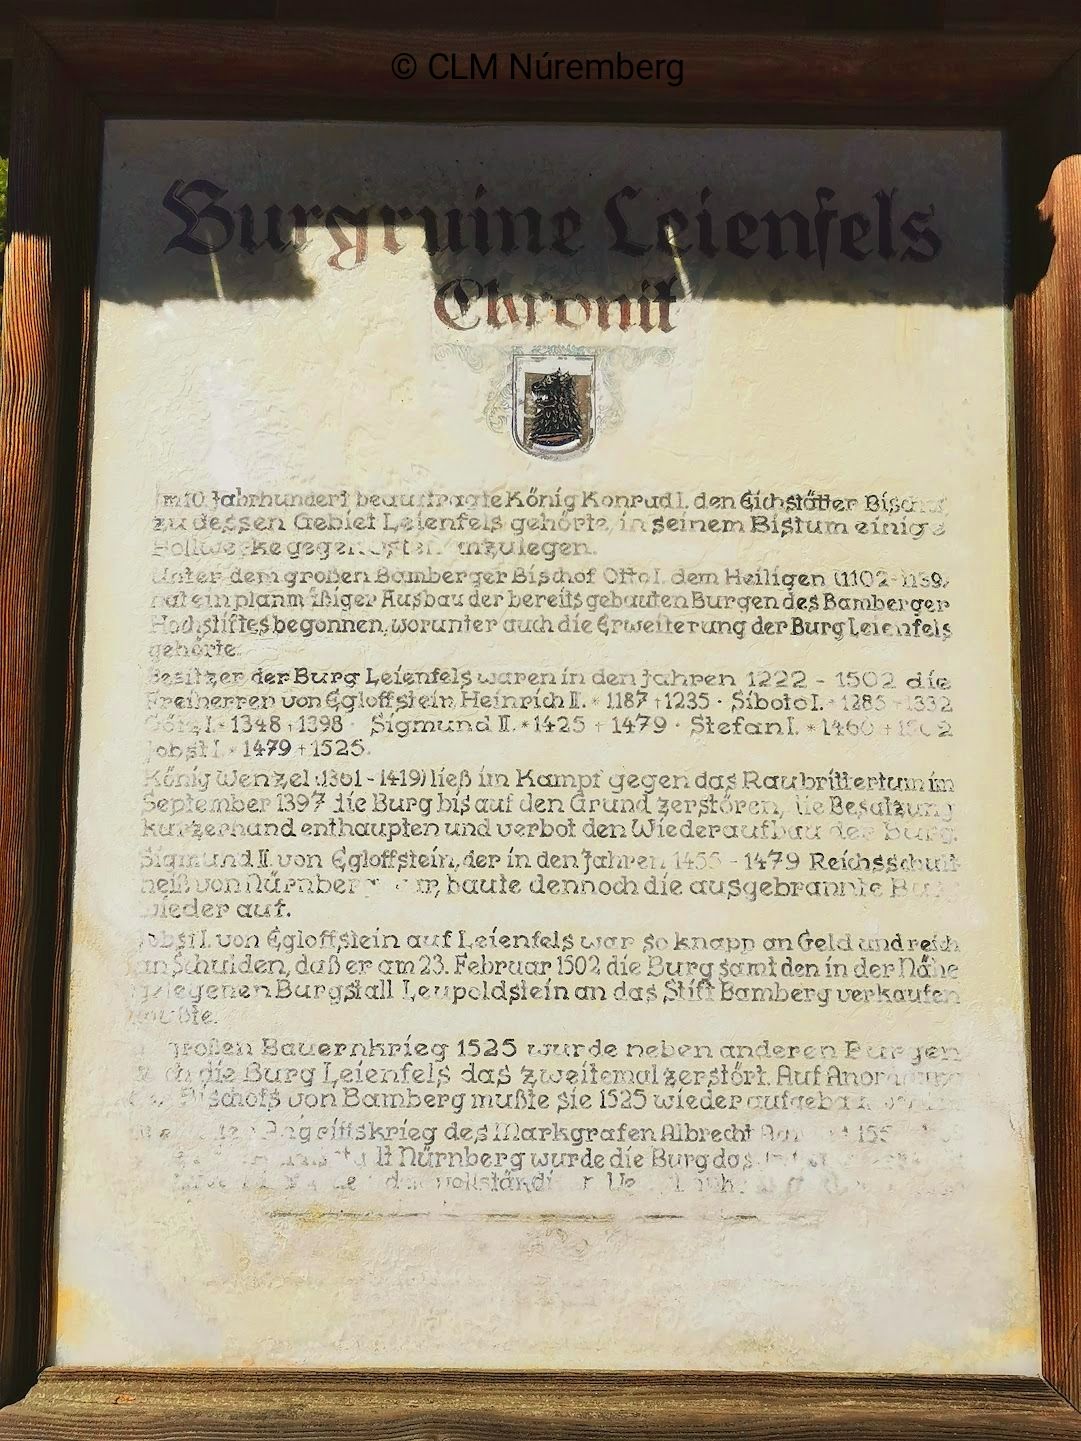 © CLM Núremberg
Burgruine Leienfels
Chronik
Im 10. Jahrhundert beauftragte König Konrad I. den Eichstätter Bischof,
zu dessen Gebiet Leienfels gehörte, in seinem Bistum einige
Bollwerke gegen Osten anzulegen.
Unter dem großen Bamberger Bischof Otto I. dem Heiligen (1102-1139)
hat ein planmäßiger Ausbau der bereits gebauten Burgen des Bamberger
Hochstiftes begonnen, worunter auch die Erweiterung der Burg Leienfels
gehörte.
Besitzer der Burg Leienfels waren in den Jahren 1222 - 1502 die
Freiherren von Egloffstein Heinrich II. * 1187 † 1235 · Siboto I. * 1285 † 1332
Götz I. * 1348 † 1398 · Sigmund II. * 1425 † 1479 · Stefan I. * 1460 †
Jobst I. * 1479 † 1525.
König Wenzel (1361 - 1419) ließ im Kampf gegen das Raubrittertum im
September 1397 die Burg bis auf den Grund zerstören, die Besatzung
kurzerhand enthaupten und verbot den Wiederaufbau der Burg.
Sigmund II. von Egloffstein, der in den Jahren 1455 - 1479 Reichsschult-
heiß von Nürnberg war, baute dennoch die ausgebrannte Burg
wieder auf.
Jobst I. von Egloffstein auf Leienfels war so knapp an Geld und reich
an Schulden, daß er am 23. Februar 1502 die Burg samt den in der Nähe
gelegenen Burgstall Leupoldstein an das Stift Bamberg verkaufen
mußte.
großen Bauernkrieg 1525 wurde neben anderen Burgen
auch die Burg Leienfels das zweitemal zerstört. Auf Anordnung
des Bischofs von Bamberg mußte sie 1525 wieder aufgebaut werden
Angriffskrieg des Markgrafen Albrecht
Nürnberg wurde die Burg das